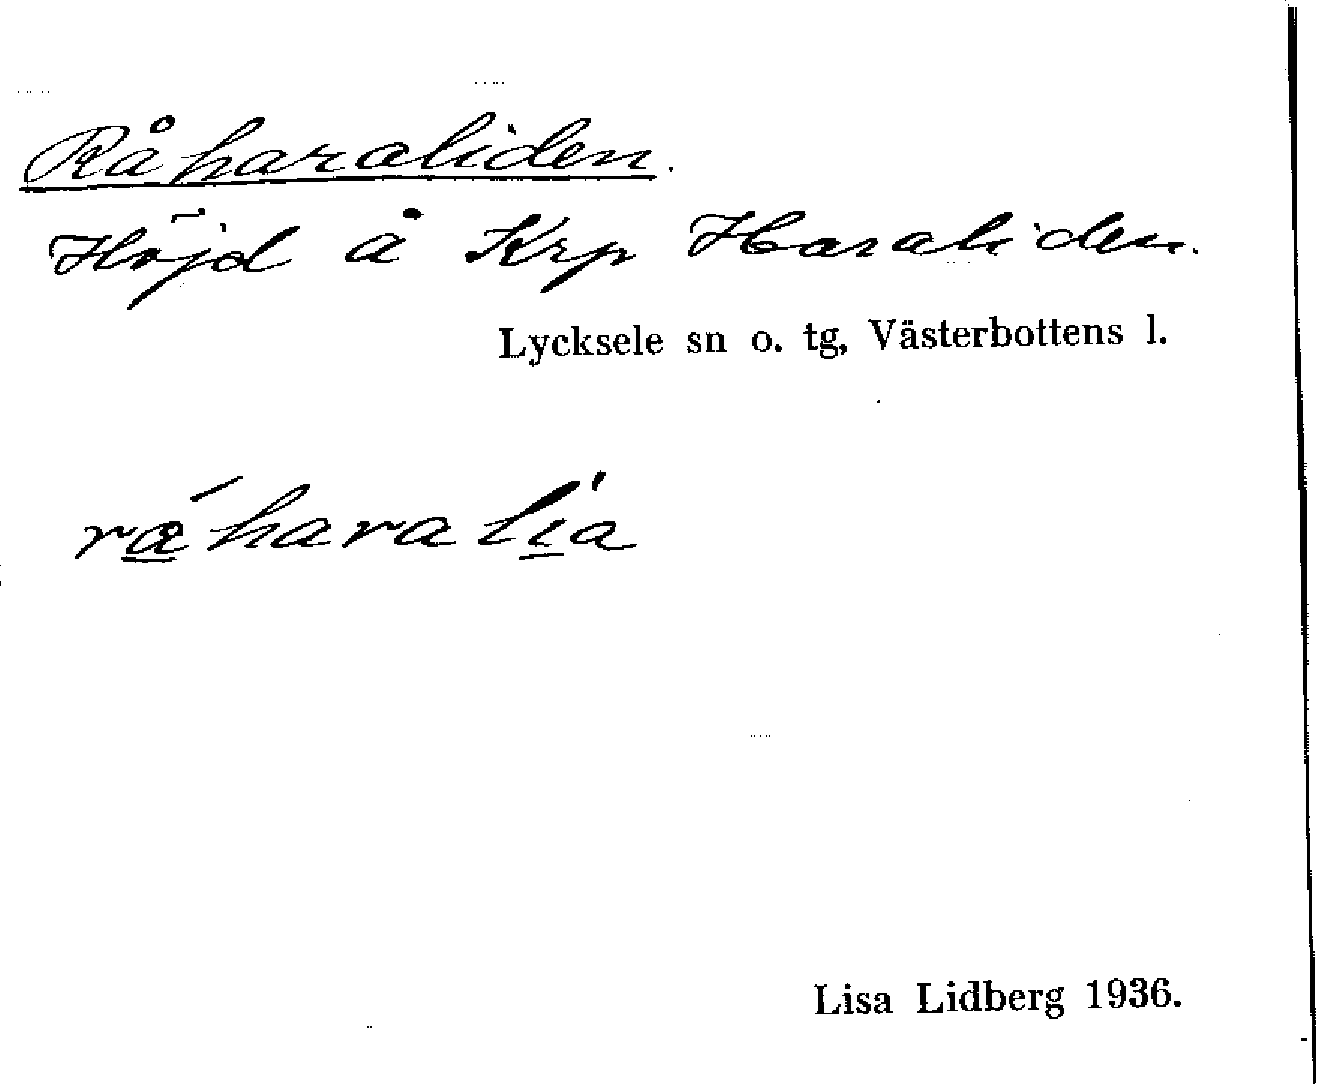 Råharaliden.
Höjd å Krp Haraliden.
Lycksele sn o. tg, Västerbottens l.
rǻharalía
Lisa Lidberg 1936.